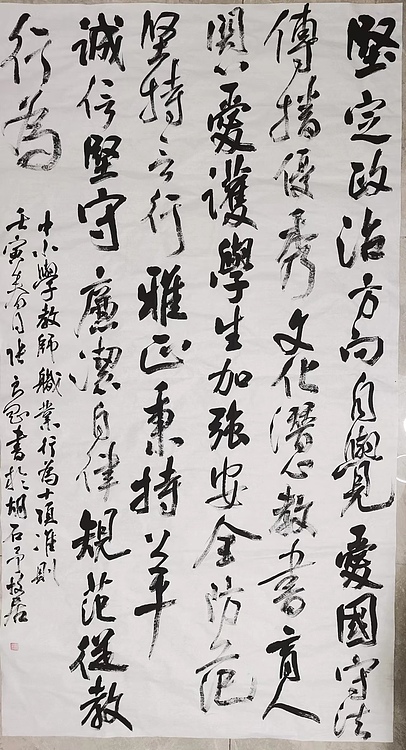 堅定政治方向自覺愛國守法
傳播優秀文化潛心教書育人
関心愛護學生加强安全防范
坚持言行雅正秉持公平
誠信堅守廉潔自律規范從教
行為
中小學教師職業行為十項准則
壬寅春月张書於胡石居